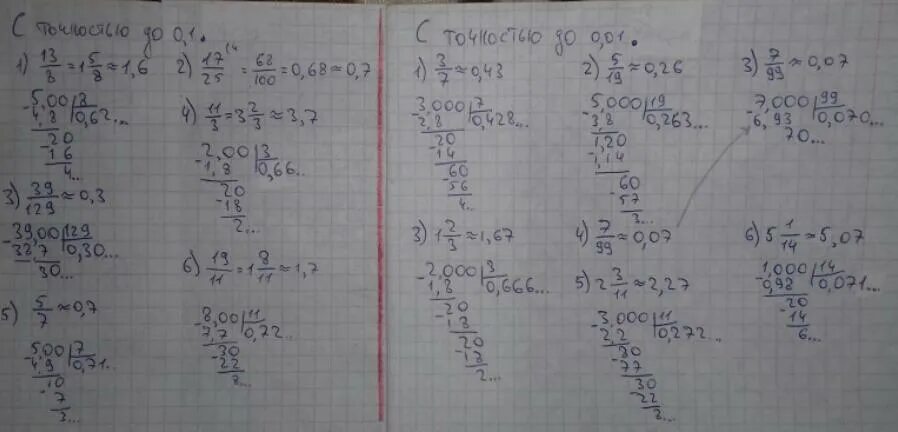 С точностью до 0,1.
1) 13/8 = 1 5/8 ≈ 1,6
5,00 | 8
4,8 | 0,62...
20
16
4...
2) 17/25 = 68/100 = 0,68 ≈ 0,7
4) 11/3 = 3 2/3 ≈ 3,7
2,00 | 3
1,8 | 0,66..
20
18
2...
3) 39/129 ≈ 0,3
39,00 | 129
38,7 | 0,30...
30...
6) 19/11 = 1 8/11 ≈ 1,7
8,00 | 11
7,7 | 0,72...
30
22
8...
5) 5/7 ≈ 0,7
5,00 | 7
4,9 | 0,71...
10
7
3...
С точностью до 0,01.
1) 3/7 ≈ 0,43
3,000 | 7
2,8 | 0,428...
20
14
60
56
4..
2) 5/19 ≈ 0,26
5,000 | 19
3,8 | 0,263...
1,20
1,14
60
57
3...
3) 7/99 ≈ 0,07
7,000 | 99
6,93 | 0,070...
70...
3) 1 2/3 ≈ 1,67
2,000 | 3
1,8 | 0,666...
20
18
20
18
2...
4) 7/99 ≈ 0,07
5) 2 3/11 ≈ 2,27
3,000 | 11
2,2 | 0,272...
80
77
30
22
8...
6) 5 1/14 ≈ 5,07
1,000 | 14
0,98 | 0,071...
20
14
6...